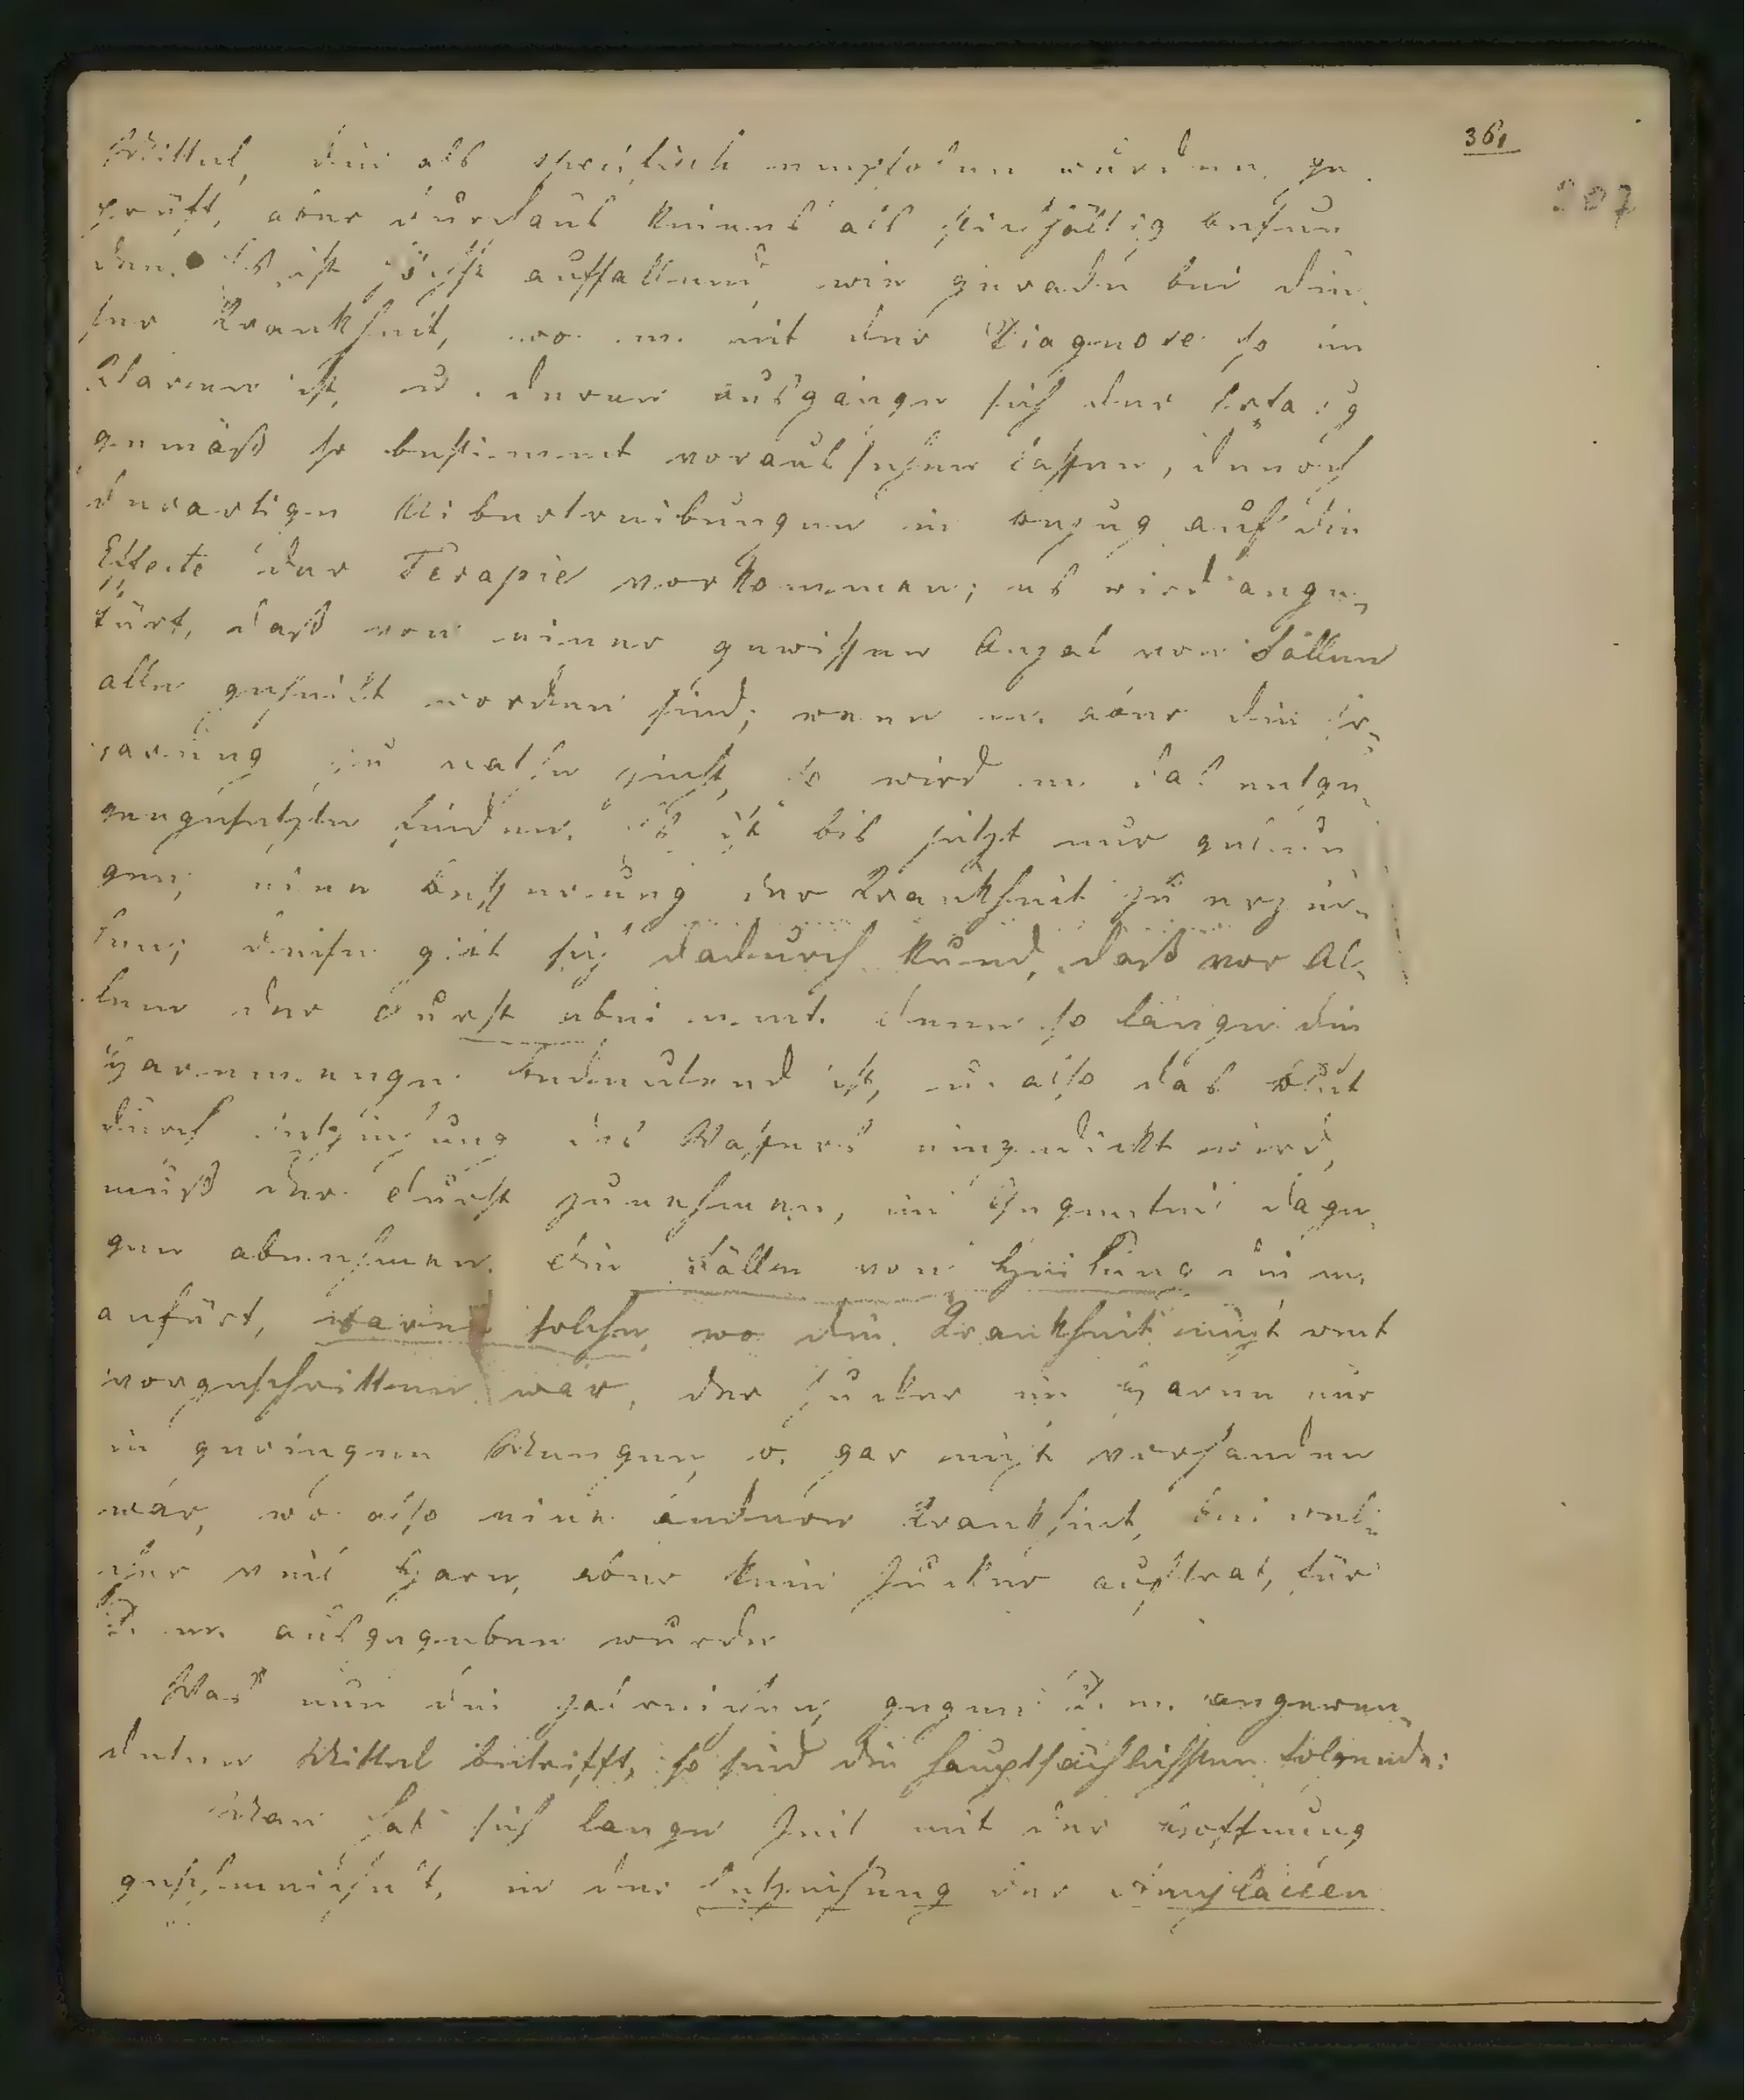 361
207
Mittel, die als specifisch empfolen wurden, ge-
prüft, aber durchaus keines als stichhältig befun
den. Es ist höchst auffallend, wie gerade bei die-
ser Krankheit, wo m. mit der Diagnose so im
Klaren ist, u. deren Ausgänge sich der
gemäß so bestimmt voraussehen lassen, dennoch
derartige Uibertreibungen in Bezug auf die
Effecte der Terapie vorkommen; es wird ange-
fürt, daß von einer gewissen Anzal von Fällen
alle geheilt worden sind; wenn m. aber die Er-
farung zu rathe zieht, so wird m. das entge-
gengesetzte finden. Es ist bis jetzt nur gelun
gen, eine Besserung der Krankheit zu erzie-
len; diese gibt sich dadurch kund, daß vor Al-
lem der Durst abnimmt. denn so lange die
Harnmenge bedeutend ist, u. also das Blut
durch Entziehung des Waßers eingedickt wird,
muß der Durst zunehmen, im Gegenteil dage-
gen abnehmen. Die Fälle von Heilung die m.
anfürt, waren solche, wo die Krankheit nicht weit
vorgeschritten war, der Zucker im Harne nur
in geringen Mengen o. gar nicht vorhanden
war, wo also eine andere Krankheit, bei wel-
cher viel Harn, aber kein Zucker auftrat, für
D. m. ausgegeben wurde
Was nun die zalreichen, gegen D. m. angewen-
deten Mittel betrifft, so sind die hauptsächlichsten folgende:
Man hat sich lange Zeit mit der Hoffnung
geschmeichelt, in der Entziehung der Amylacéen